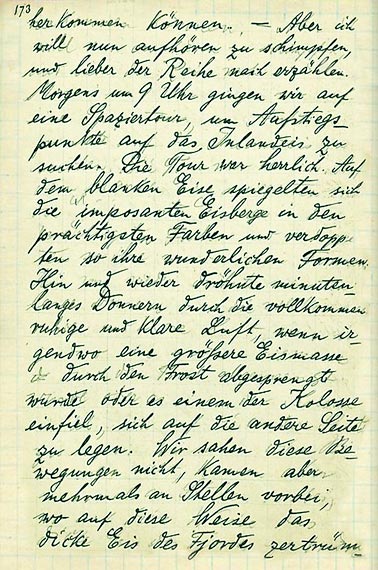 173
her kommen können. — Aber ich
will nun aufhören zu schimpfen,
und lieber der Reihe nach erzählen.
Morgens um 9 Uhr gingen wir auf
eine Spaziertour, um Aufstiegs-
punkte auf das Inlandeis zu
suchen. Die Tour war herrlich. Auf
dem blanken Eise spiegelten sich
die imposanten Eisberge in den
prächtigsten Farben und verdopp-
ten so ihre wunderlichen Formen.
Hin und wieder dröhnte minuten-
langes Donnern durch die vollkommen
ruhige und klare Luft, wenn ir-
gendwo eine grössere Eismasse
durch den Frost abgesprengt
wurde oder es einem der Kolosse
einfiel, sich auf die andere Seite
zu legen. Wir sahen diese Be-
wegungen nicht, kamen aber
mehrmals an Stellen vorbei,
wo auf diese Weise das
dicke Eis des Fjordes zertrüm-